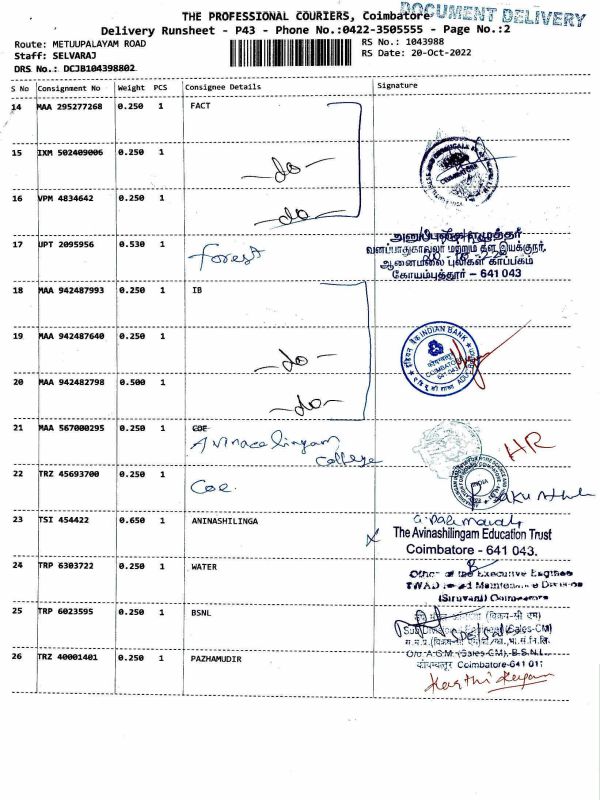 DOCUMENT DELIVERY
THE PROFESSIONAL COURIERS, Coimbatore
Delivery Runsheet - P43 - Phone No.:0422-3505555 - Page No.:2
Route: METUUPALAYAM ROAD
RS No.: 1043988
Staff: SELVARAJ
RS Date: 20-Oct-2022
DRS No.: DCJB104398802
S No Consignment No Weight PCS Consignee Details Signature
14 MAA 295277268 0.250 1 FACT
15 IXM 502409006 0.250 1 -do-
16 VPM 4834642 0.250 1 -do-
17 UPT 2095956 0.530 1 forest
வனப்பாதுகாவலர் மற்றும் கள இயக்குநர்,
ஆனைமலை புலிகள் காப்பகம்
கோயம்புத்தூர் - 641 043
18 MAA 942487993 0.250 1 IB
19 MAA 942487640 0.250 1 -do-
INDIAN BANK
COIMBATORE
641 043
20 MAA 942482798 0.500 1 -do-
21 MAA 567000295 0.250 1 COE
Avinacelingam
College
HR
22 TRZ 45693700 0.250 1 Coe.
23 TSI 454422 0.650 1 ANINASHILINGA
The Avinashilingam Education Trust
Coimbatore - 641 043.
24 TRP 6303722 0.250 1 WATER
Office of the Executive Engineer
TWAD Maintenance Division
(Siruvani) Coimbatore
25 TRP 6023595 0.250 1 BSNL
(Sales-CM)
O/o A.G.M. (Sales-CM), B.S.N.L.,
कोयम्बत्तूर Coimbatore-641 011
26 TRZ 40001401 0.250 1 PAZHAMUDIR
Karthikeyan